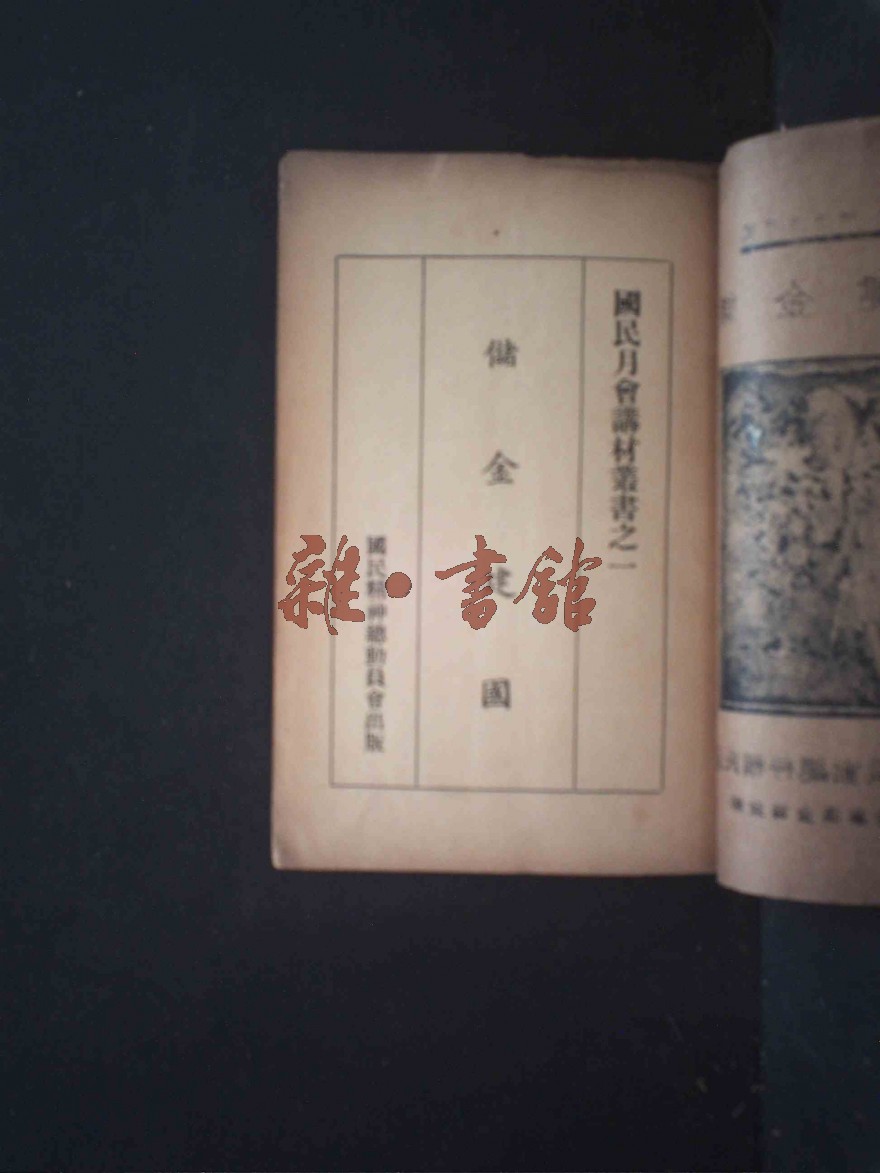 國民月會講材叢書之一
儲金建國
國民精神總動員會出版
雜·書館
金